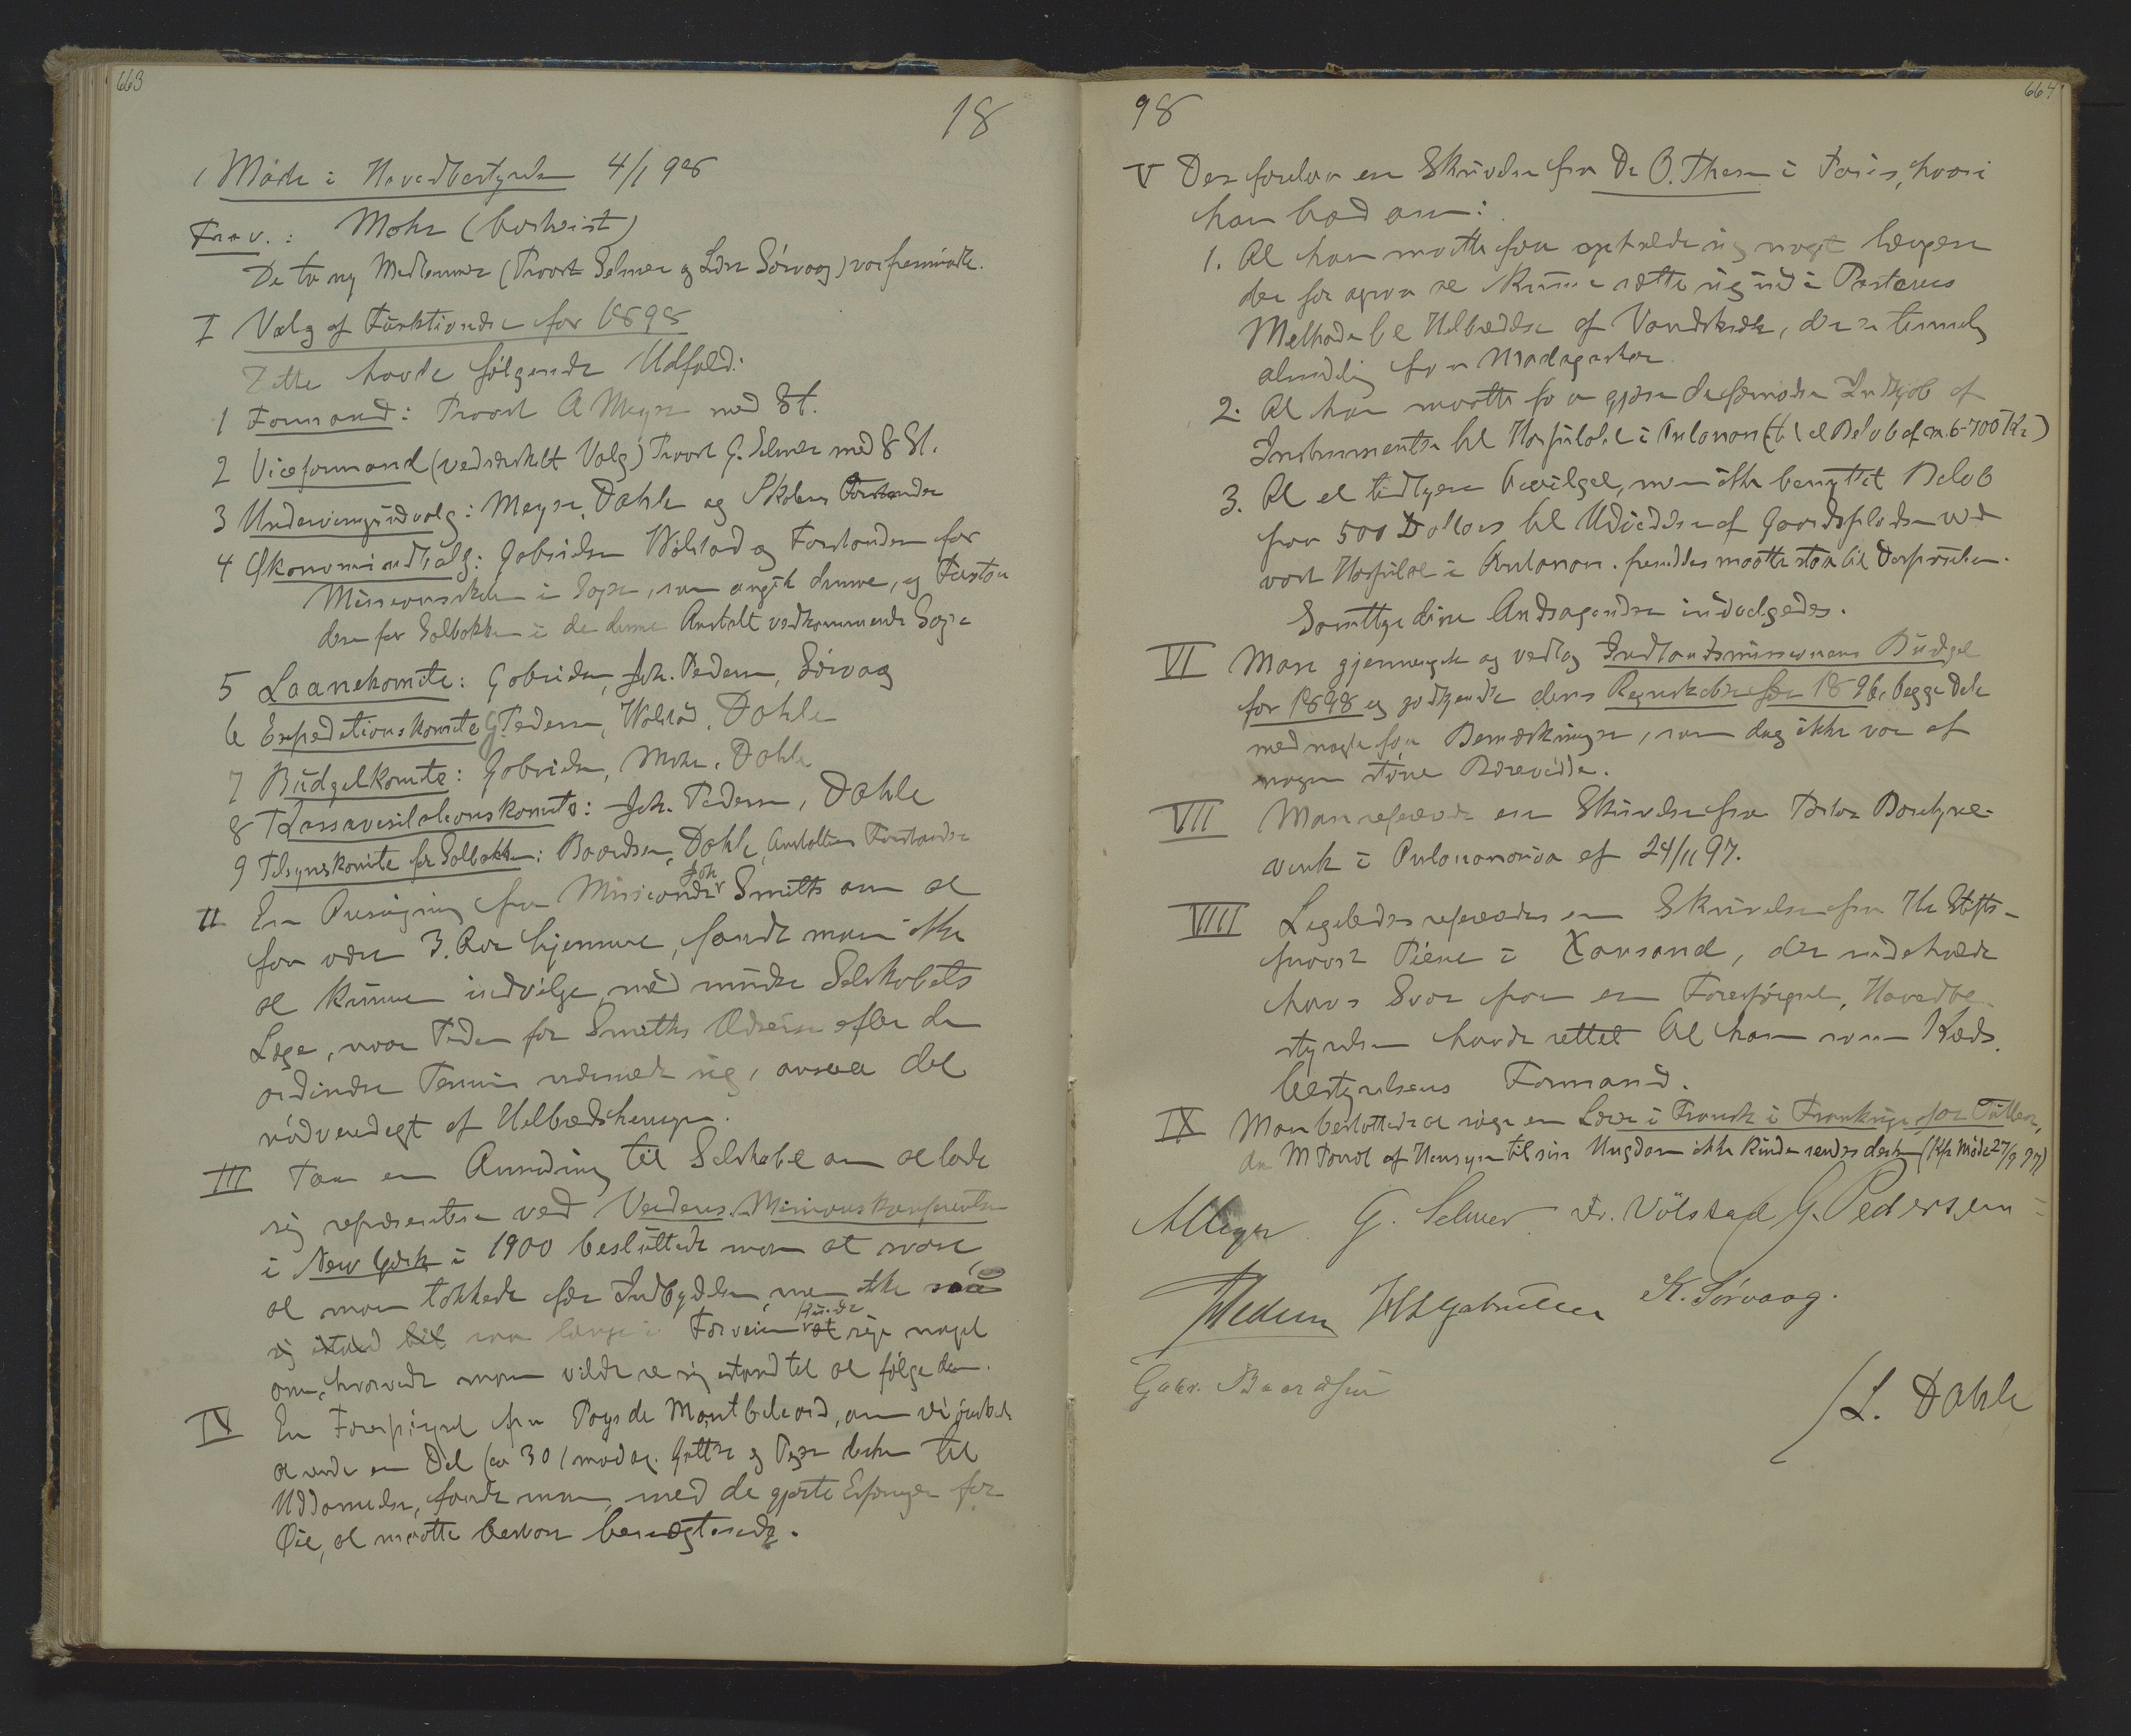 663
18
Möde i Hovedbestyrelsen 4/1 98
Frav.: Mohr (bortreist)
De to ny Medlemmer (Provst Selmer og Lærer Sörvaag) var fremmödte.
I Valg af Funktionærer for 1898
Dette havde fölgende Udfald:
1 Formand: Provst A Meyer med 8 St.
2 Viceformand (ved særskilt Valg) Provst G. Selmer med 8 St.
3 Undervisningsudvalg: Meyer, Dahle og Skolens Forstander
4 Økonomiudvalg: Gabrielsen Wölstad og Forstanderen for
Missionsskolen i Sager, som angik denne, og Forstan
deren for Solbakken i de denne Anstalt vedkommende Sager
5 Laanekomite: Gabrielsen, Joh. Pedersen, Sörvaag
6 Expeditionskomite G Pedersen, Wölstad, Dahle
7 Büdgetkomite: Gabrielsen, Mohr, Dahle
8 Kassavisitationskomite: Joh. Pedersen, Dahle
9 Tilsynskomite for Solbakken: Baardsen, Dahle, Anstaltens Forstander
II En Ansögning fra Missionær Joh Smith om at
faa være 3. Aar hjemme, fandt man ikke
at kunne indvilge, med mindre Selskabets
Læge, naar Tiden for Smiths Udreise efter den
ordinære Termin nærmede sig, ansaa det
nödvendigt af Helbredshensyn.
III Paa en Anmodning til Selskabet om at lade
sig repræsentere ved Verdens Missionskonferentsen
i New York i 1900 besluttede man at svare,
at man takkede for Indbydelsen, men ikke saa
sig istand til saa længe i Forveien kunde at sige noget
om, hvorvidt man vilde se sig istand til at fölge den.
IV En Forespörgsel fra Pays de Montbeliard, om vi önskede
at sende en Del (ca 30) madag. Gutter og Piger derhen til
Uddannelse, fandt man, med de gjorte Erfaringer for
Øie, at maatte besvare benægtende.
98
664
V Der forelaa en Skrivelse fra Dr O. Thesen i Paris, hvori
han bad om:
1. At han maatte faa opholde sig noget længere
der for ogsaa at kunne sætte sig ind i Pasteurs
Methode til Helbredelse af Vandskræk, der er temmelig
almindelig paa Madagaskar.
2. At han maatte faa gjøre de fornødne Indkjøb af
Instrumenter til Hospitalet i Antanan. (til et Beløb af ca. 6-700 Kr)
3. At et tidligere bevilget, men ikke benyttet Beløb
paa 500 Dollars til Udvidelse af Gaardspladsen ved
vort Hospital i Antanan. fremdeles maatte staa til Disposition.
Samtlige disse Andragender indvilgedes.
VI Man gjennemgik og vedtog Indlandsmissionens Büdget
for 1898 og godkjendte dens Regnskaber for 1896, begge Dele
med nogle faa Bemærkninger, som dog ikke var af
nogen större Rækevidde.
VII Man refererede en Skrivelse fra Pastor Borchgre-
vink i Antananarivo af 24/11 97.
VIII Ligeledes refereredes en Skrivelse fra Hr Stifts-
provst Piene i Xansand, der indeholdt
hans Svar paa en Forespörgsel, Hovedbe-
styrelsen havde rettet til ham som Kreds
bestyrelsens Formand.
IX Man besluttede at söge en Lærer i Fransk i Frankrige for
M af Hensyn til sin Ungdom ikke kunde sendes derhen (Kfr Möde 27/9 97)
AMeyer G. Selmer Fr. Völstad G. Pedersen
JPedersen Gabrielsen K. Sörvaag.
Gabr. Baardsen
L. Dahle